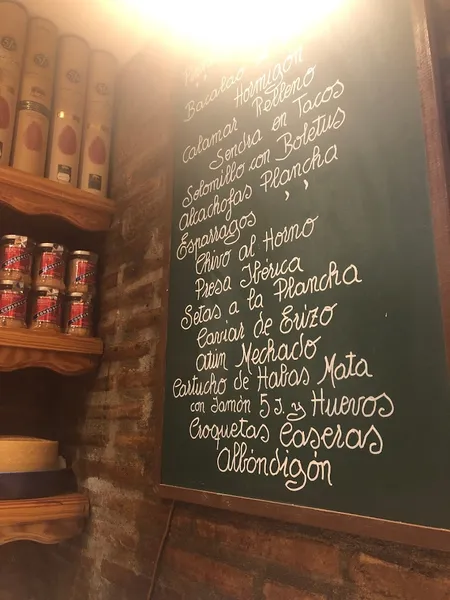 Bacalao
Hormigón
Calamar Relleno
Sendra en Tacos
Solomillo con Boletus
Alcachofas Plancha
Esparragos " "
Chivo al Horno
Presa Ibérica
Setas a la Plancha
Caviar de Erizo
Atún Mechado
Cartucho de Habas Mata
con Jamón 5 J. y Huevos
Croquetas Caseras
Albóndigón